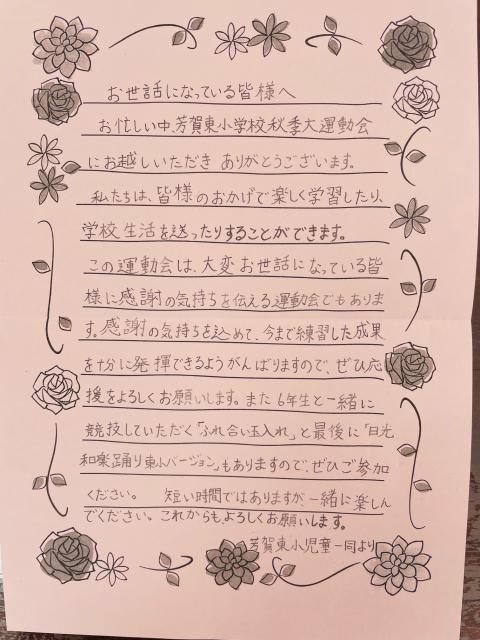 お世話になっている皆様へ
お忙しい中、芳賀東小学校秋季大運動会
にお越しいただき ありがとうございます。
私たちは、皆様のおかげで楽しく学習したり、
学校生活を送ったりすることができます。
この運動会は、大変お世話になっている皆
様に感謝の気持ちを伝える運動会でもありま
す。感謝の気持ちを込めて、今まで練習した成果
を十分に発揮できるようがんばりますので、ぜひ応
援をよろしくお願いします。また6年生と一緒に
競技していただく「ふれ合い玉入れ」と最後に「日光
和楽踊り東小バージョン」もありますので、ぜひご参加
ください。 短い時間ではありますが、一緒に楽しん
でください。これからも、よろしくお願いします。
芳賀東小児童一同より